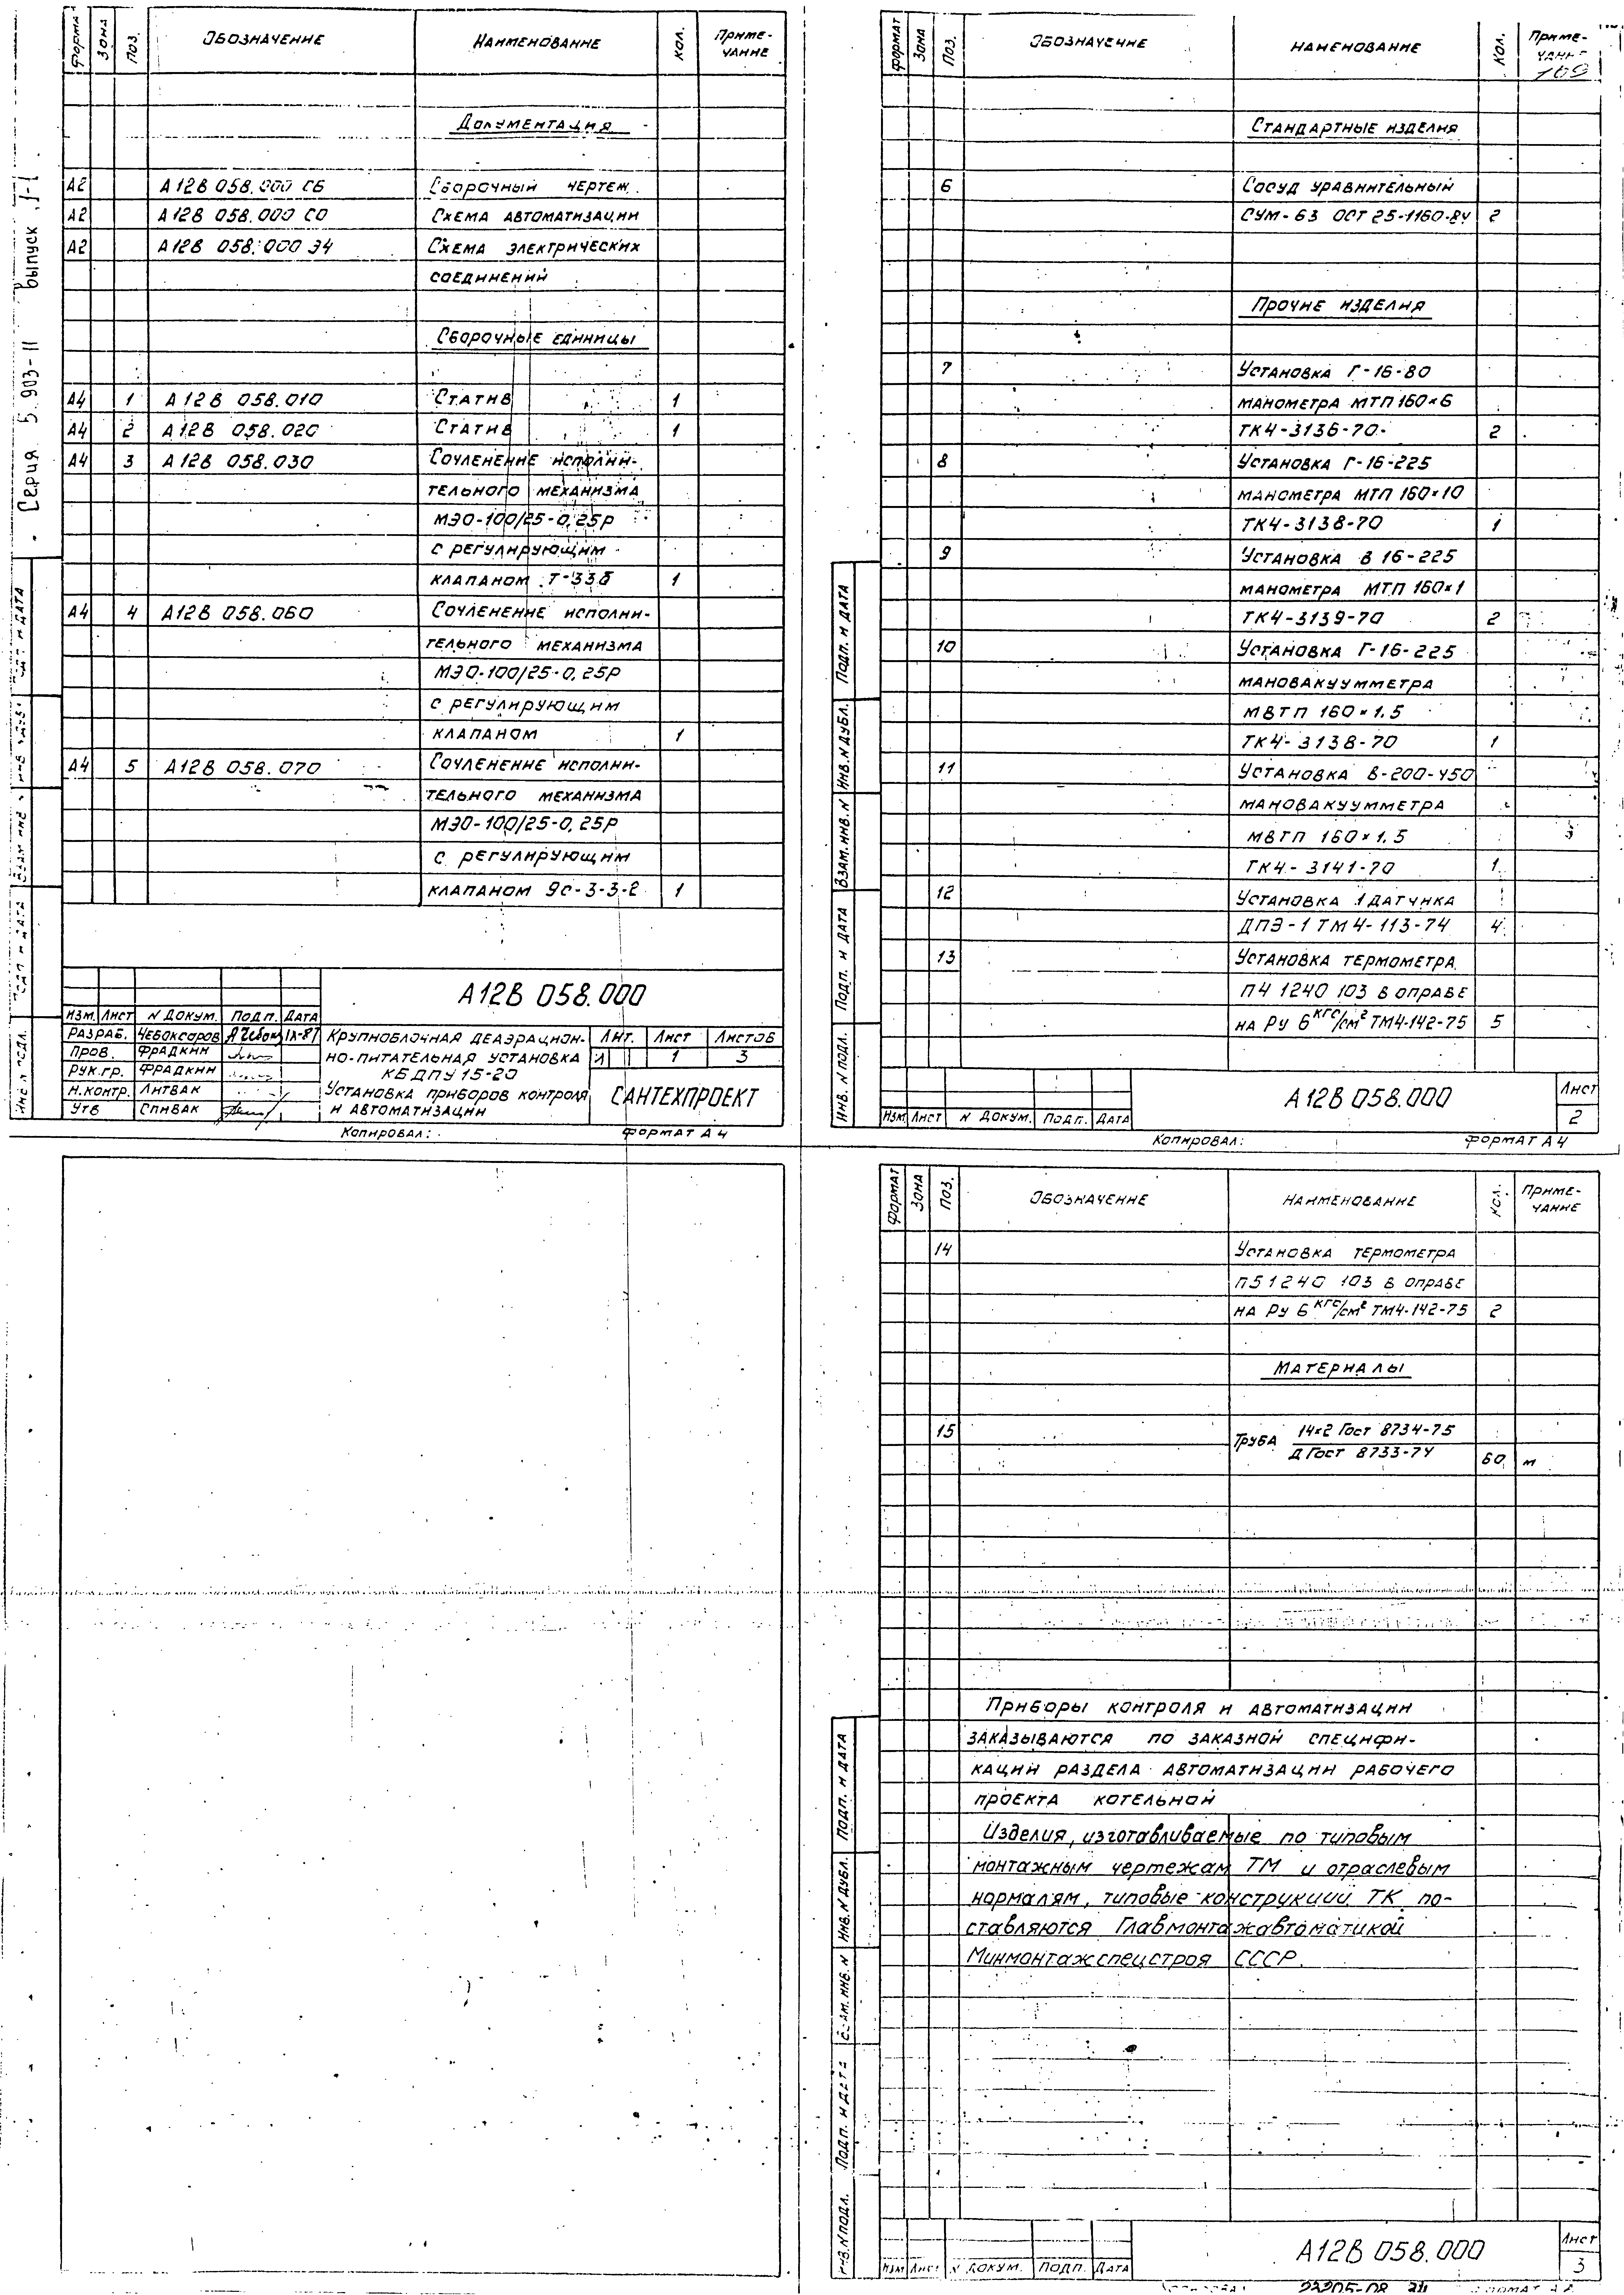 Серия 5.903-11 выпуск 1-1
ФОРМАТ ЗОНА ПОЗ. ОБОЗНАЧЕНИЕ НАИМЕНОВАНИЕ КОЛ. ПРИМЕ-
ЧАНИЕ
ДОКУМЕНТАЦИЯ
А2 А12В 058.000 СБ СБОРОЧНЫЙ ЧЕРТЕЖ
А2 А12В 058.000 СО СХЕМА АВТОМАТИЗАЦИИ
А2 А12В 058.000 Э4 СХЕМА ЭЛЕКТРИЧЕСКИХ
СОЕДИНЕНИЙ
СБОРОЧНЫЕ ЕДИНИЦЫ
А4 1 А12В 058.010 СТАТИВ 1
А4 2 А12В 058.020 СТАТИВ 1
А4 3 А12В 058.030 СОЧЛЕНЕНИЕ ИСПОЛНИ-
ТЕЛЬНОГО МЕХАНИЗМА
МЭО-100/25-0,25Р
С РЕГУЛИРУЮЩИМ
КЛАПАНОМ Т-33б 1
А4 4 А12В 058.060 СОЧЛЕНЕНИЕ ИСПОЛНИ-
ТЕЛЬНОГО МЕХАНИЗМА
МЭО-100/25-0,25Р
С РЕГУЛИРУЮЩИМ
КЛАПАНОМ 1
А4 5 А12В 058.070 СОЧЛЕНЕНИЕ ИСПОЛНИ-
ТЕЛЬНОГО МЕХАНИЗМА
МЭО-100/25-0,25Р
С РЕГУЛИРУЮЩИМ
КЛАПАНОМ 9С-3-3-2 1
А12В 058.000
ИЗМ. ЛИСТ N ДОКУМ. ПОДП. ДАТА
РАЗРАБ. ЧЕБОКСАРОВ IX-87
ПРОВ. ФРАДКИН
РУК.ГР. ФРАДКИН
Н.КОНТР. ЛИТВАК
УТВ СПИВАК
КРУПНОБЛОЧНАЯ ДЕАЭРАЦИОН-
НО-ПИТАТЕЛЬНАЯ УСТАНОВКА
КБДПУ 15-20
УСТАНОВКА ПРИБОРОВ КОНТРОЛЯ
И АВТОМАТИЗАЦИИ
ЛИТ. ЛИСТ ЛИСТОВ
1 3
САНТЕХПРОЕКТ
КОПИРОВАЛ: ФОРМАТ А4
ФОРМАТ ЗОНА ПОЗ. ОБОЗНАЧЕНИЕ НАИМЕНОВАНИЕ КОЛ. ПРИМЕ-
ЧАНИЕ
169
СТАНДАРТНЫЕ ИЗДЕЛИЯ
6 СОСУД УРАВНИТЕЛЬНЫЙ
СУМ-63 ОСТ 25-1160-84 2
ПРОЧИЕ ИЗДЕЛИЯ
7 УСТАНОВКА Г-16-80
МАНОМЕТРА МТП 160×6
ТК4-3136-70 2
8 УСТАНОВКА Г-16-225
МАНОМЕТРА МТП 160×10
ТК4-3138-70 1
9 УСТАНОВКА В 16-225
МАНОМЕТРА МТП 160×1
ТК4-3139-70 2
10 УСТАНОВКА Г-16-225
МАНОВАКУУММЕТРА
МВТП 160×1.5
ТК4-3138-70 1
11 УСТАНОВКА В-200-450
МАНОВАКУУММЕТРА
МВТП 160×1.5
ТК4-3141-70 1
12 УСТАНОВКА 1 ДАТЧИКА
ДПЭ-1 ТМ4-113-74 4
13 УСТАНОВКА ТЕРМОМЕТРА
П4 1240 103 В ОПРАВЕ
НА РУ 6 КГС/СМ² ТМ4-142-75 5
ПОДП. И ДАТА
ИНВ.N ДУБЛ.
ВЗАМ.ИНВ.N
ПОДП. И ДАТА
ИНВ. N ПОДЛ.
ИЗМ ЛИСТ N ДОКУМ. ПОДП. ДАТА
А12В 058.000
ЛИСТ
2
КОПИРОВАЛ: ФОРМАТ А4
ФОРМАТ ЗОНА ПОЗ. ОБОЗНАЧЕНИЕ НАИМЕНОВАНИЕ КОЛ. ПРИМЕ-
ЧАНИЕ
14 УСТАНОВКА ТЕРМОМЕТРА
П5 1240 103 В ОПРАВЕ
НА РУ 6 КГС/СМ² ТМ4-142-75 2
МАТЕРИАЛЫ
15 ТРУБА 14×2 ГОСТ 8734-75
Д ГОСТ 8733-74
60 М
ПРИБОРЫ КОНТРОЛЯ И АВТОМАТИЗАЦИИ
ЗАКАЗЫВАЮТСЯ ПО ЗАКАЗНОЙ СПЕЦИФИ-
КАЦИИ РАЗДЕЛА АВТОМАТИЗАЦИИ РАБОЧЕГО
ПРОЕКТА КОТЕЛЬНОЙ
Изделия, изготавливаемые по типовым
монтажным чертежам ТМ и отраслевым
нормалям, типовые конструкции ТК по-
ставляются Главмонтажавтоматикой
Минмонтажспецстроя СССР.
ПОДП. И ДАТА
ИНВ.N ДУБЛ.
ВЗАМ.ИНВ.N
ПОДП. И ДАТА
ИНВ.N ПОДЛ.
ИЗМ ЛИСТ N ДОКУМ. ПОДП. ДАТА
А12В 058.000
ЛИСТ
3